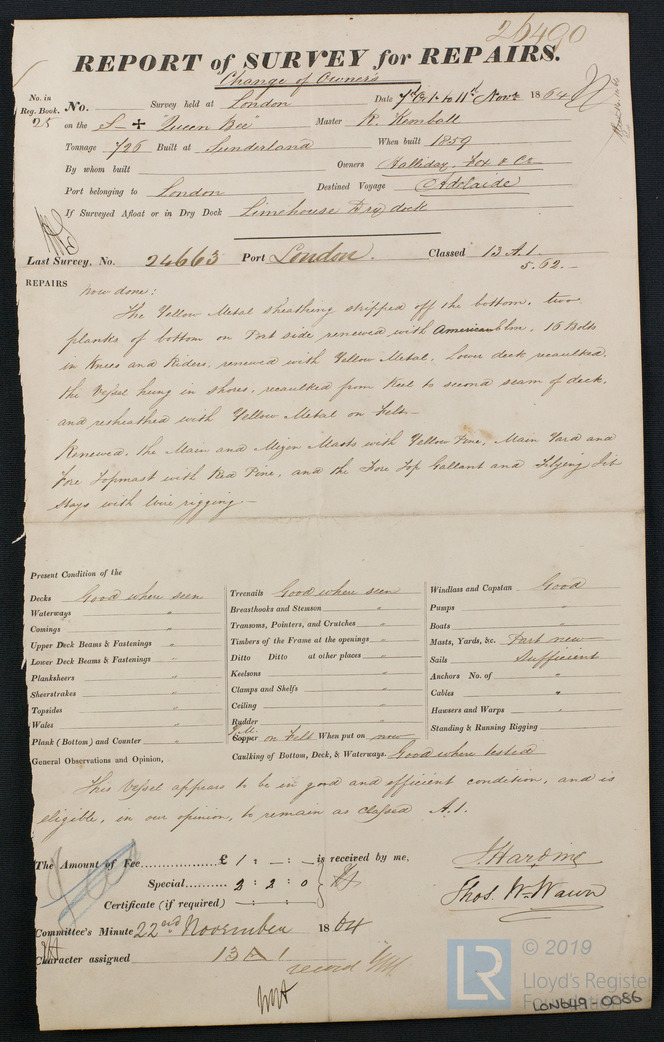 26490
REPORT of SURVEY for REPAIRS.
Change of Owners
No. in Reg. Book. No. Survey held at London Date 7th Oct. to 11th Novr 1864
25 on the S "Queen Bee" Master R. Kemball
Tonnage 726 Built at Sunderland When built 1859
By whom built Owners Halliday, Fox & Co
Port belonging to London Destined Voyage Adelaide
If Surveyed Afloat or in Dry Dock Limehouse Dry dock
Last Survey, No. 24663 Port London. Classed 13 A.1.
5.62.-
REPAIRS now done:
The Yellow Metal sheathing stripped off the bottom, two
planks of bottom on Port side renewed with American Elm, 16 Bolts
in Knees and Riders, renewed with Yellow Metal, Lower deck recaulked,
the Vessel hung in shores, recaulked from Keel to second seam of deck,
and resheathed with Yellow Metal on Felt-
Renewed, the Main and Mizen Masts with Yellow Pine, Main Yard and
Fore Topmast with Red Pine, and the Fore Top Gallant and Flying Jib
Stays with wire rigging.-
Present Condition of the
Decks Good when seen
Waterways "
Comings "
Upper Deck Beams & Fastenings "
Lower Deck Beams & Fastenings "
Planksheers "
Sheerstrakes "
Topsides "
Wales "
Plank (Bottom) and Counter "
Treenails Good when seen
Breasthooks and Stemson "
Transoms, Pointers, and Crutches "
Timbers of the Frame at the openings "
Ditto Ditto at other places "
Keelsons "
Clamps and Shelfs "
Ceiling "
Rudder "
Y.M.
Copper on Felt When put on new
Caulking of Bottom, Deck, & Waterways. Good where tested
Windlass and Capstan Good
Pumps "
Boats "
Masts, Yards, &c. Part new
Sails Sufficient
Anchors No. of "
Cables "
Hawsers and Warps "
Standing & Running Rigging "
General Observations and Opinion,
This Vessel appears to be in good and efficient condition, and is
eligible, in our opinion, to remain as classed A.1.
The Amount of Fee £ 1 : - : - is received by me,
Special 2 : 2 : 0
Certificate (if required) - : - :
Thos. Wm Wawn
Committee's Minute 22nd November 1864
Character assigned 13 A 1
record
LR © 2019
Lloyd's Register
Foundation
LON649-0086